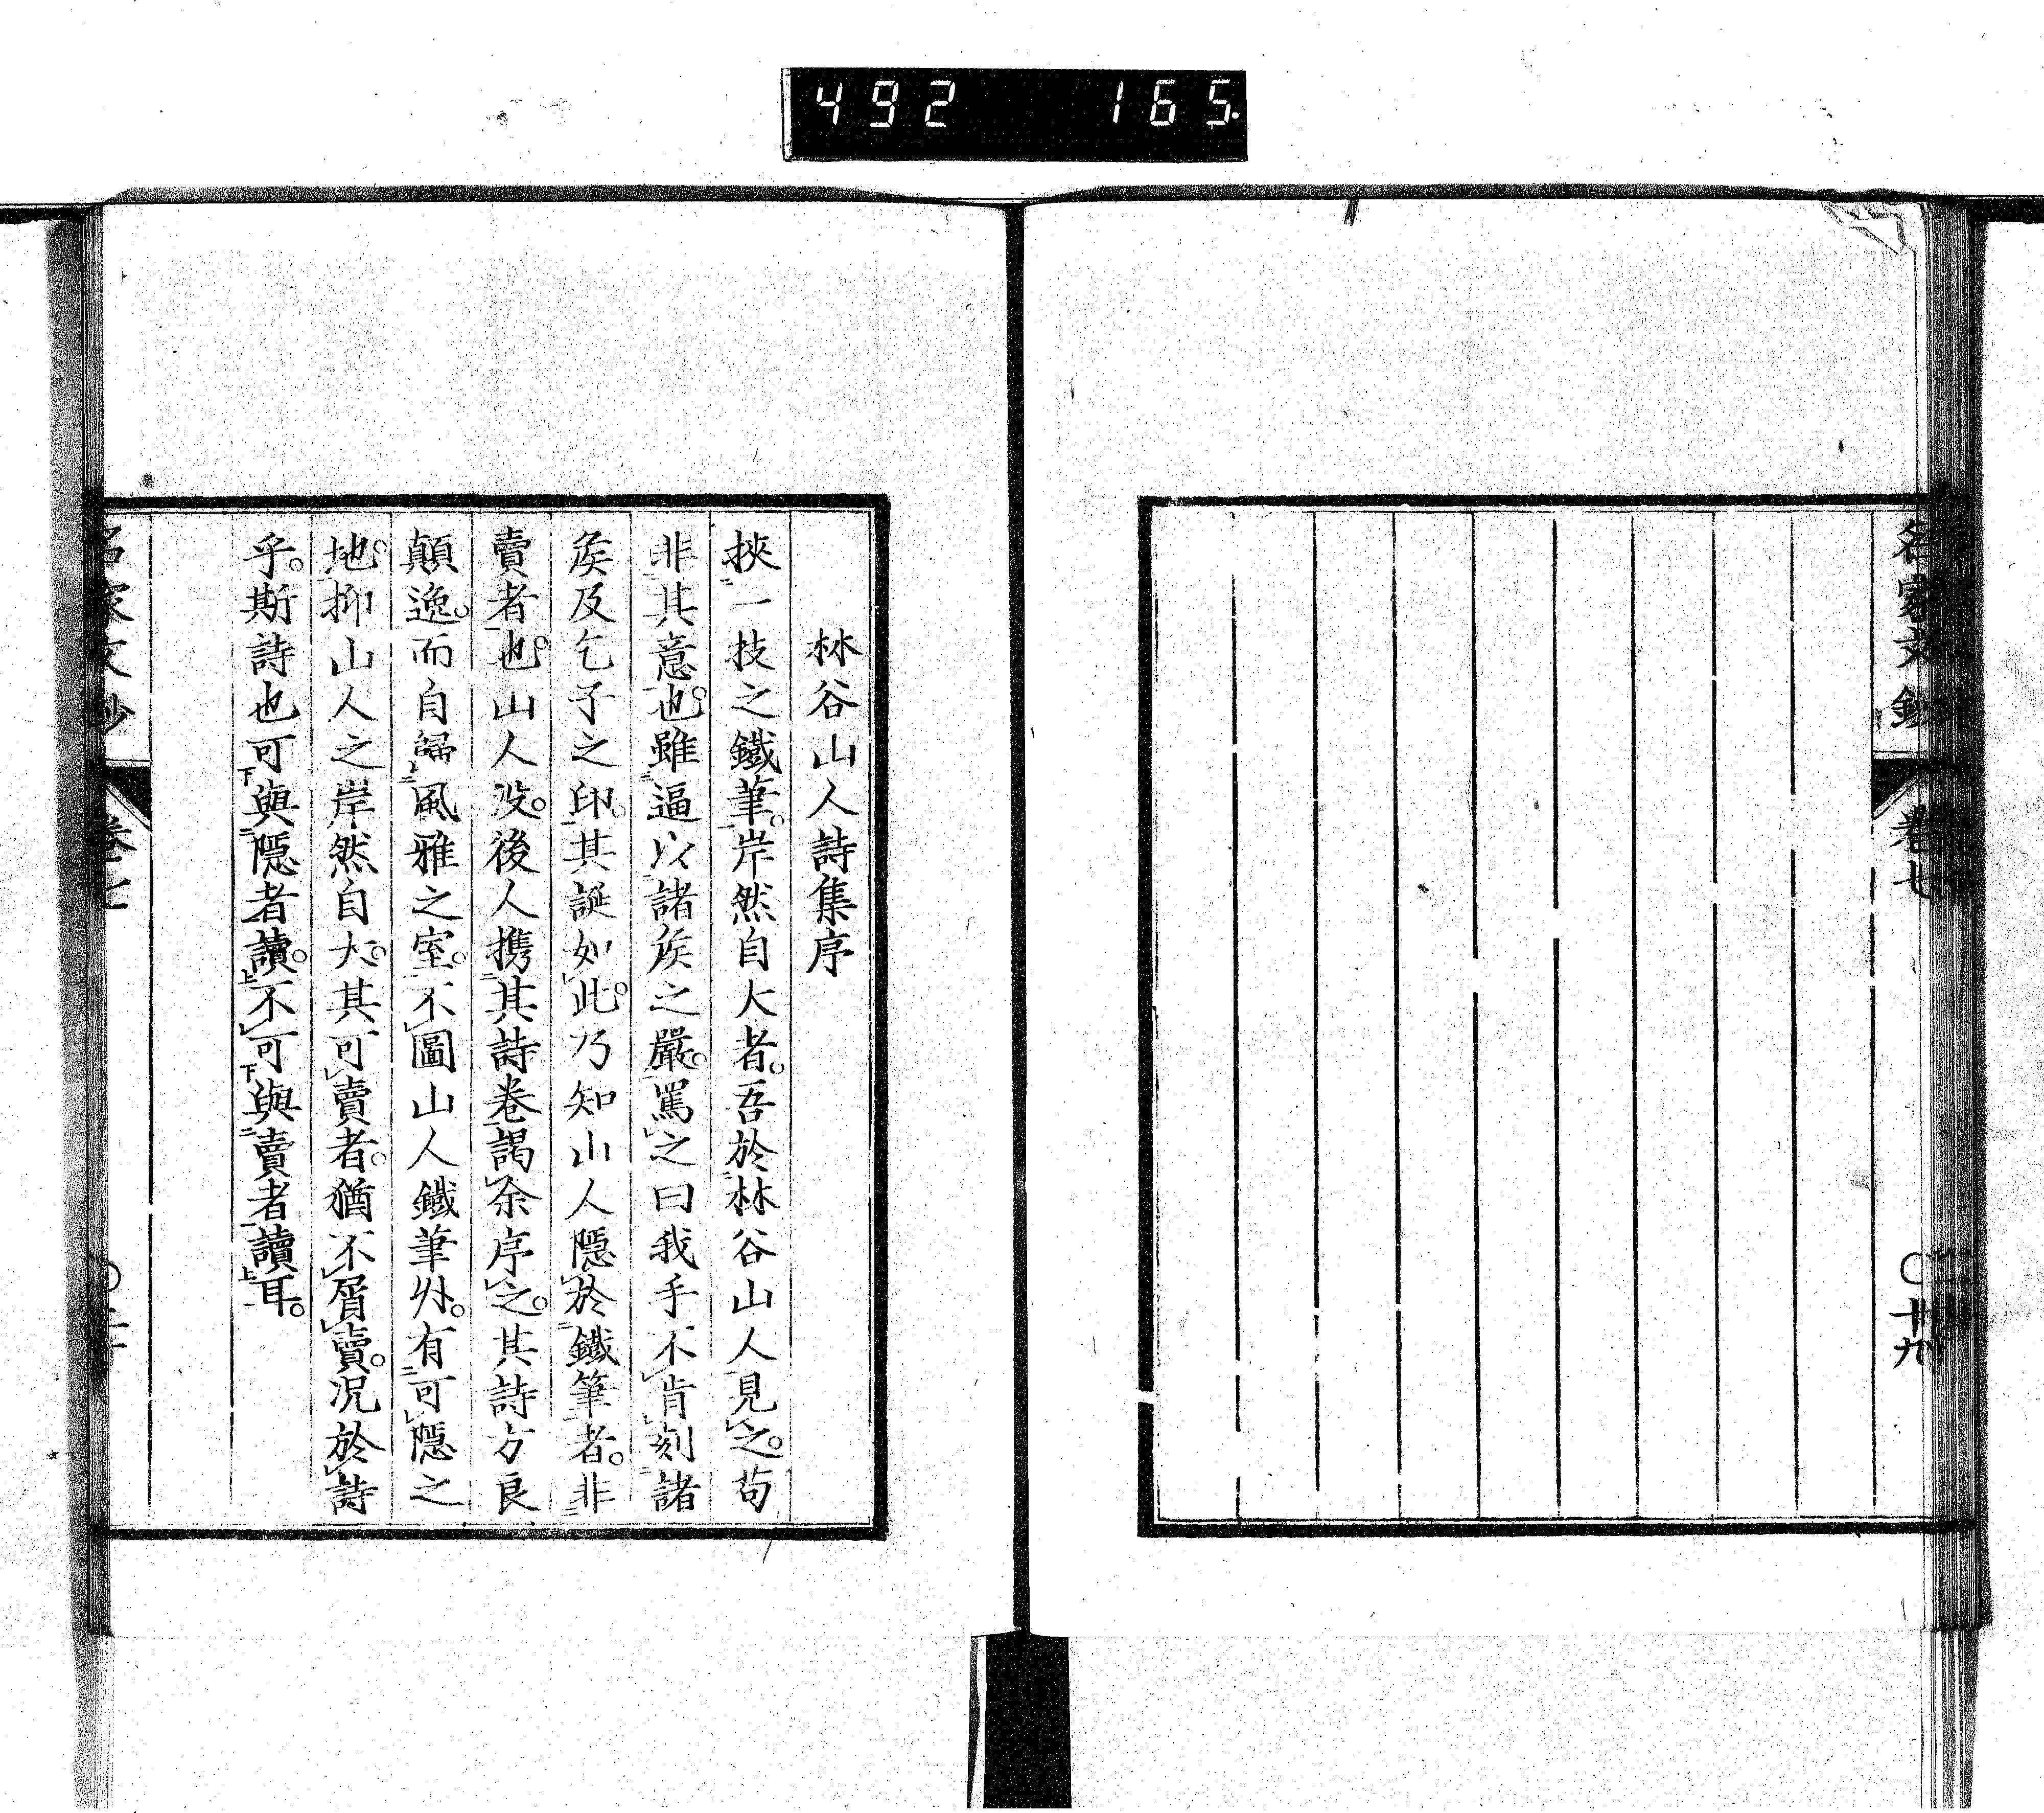 492 165.
名家文鈔 卷七 〇十九
林谷山人詩集序
挾一技之鐵筆。岸然自大者。吾於林谷山人見之。苟
非其意也。雖逼以諸矦之嚴。罵之曰我手不肯刻諸
矦及乞子之印。其誕如此。乃知山人隱於鐵筆者。非
賣者也。山人沒。後人携其詩卷謁余序之。其詩方良
顛逸。而自歸風雅之室。不圖山人鐵筆外。有可隱之
地。抑山人之岸然自大。其可賣者。猶不屑賣。況於詩
乎。斯詩也可與隱者讀。不可與賣者讀耳。
名家文鈔 卷七